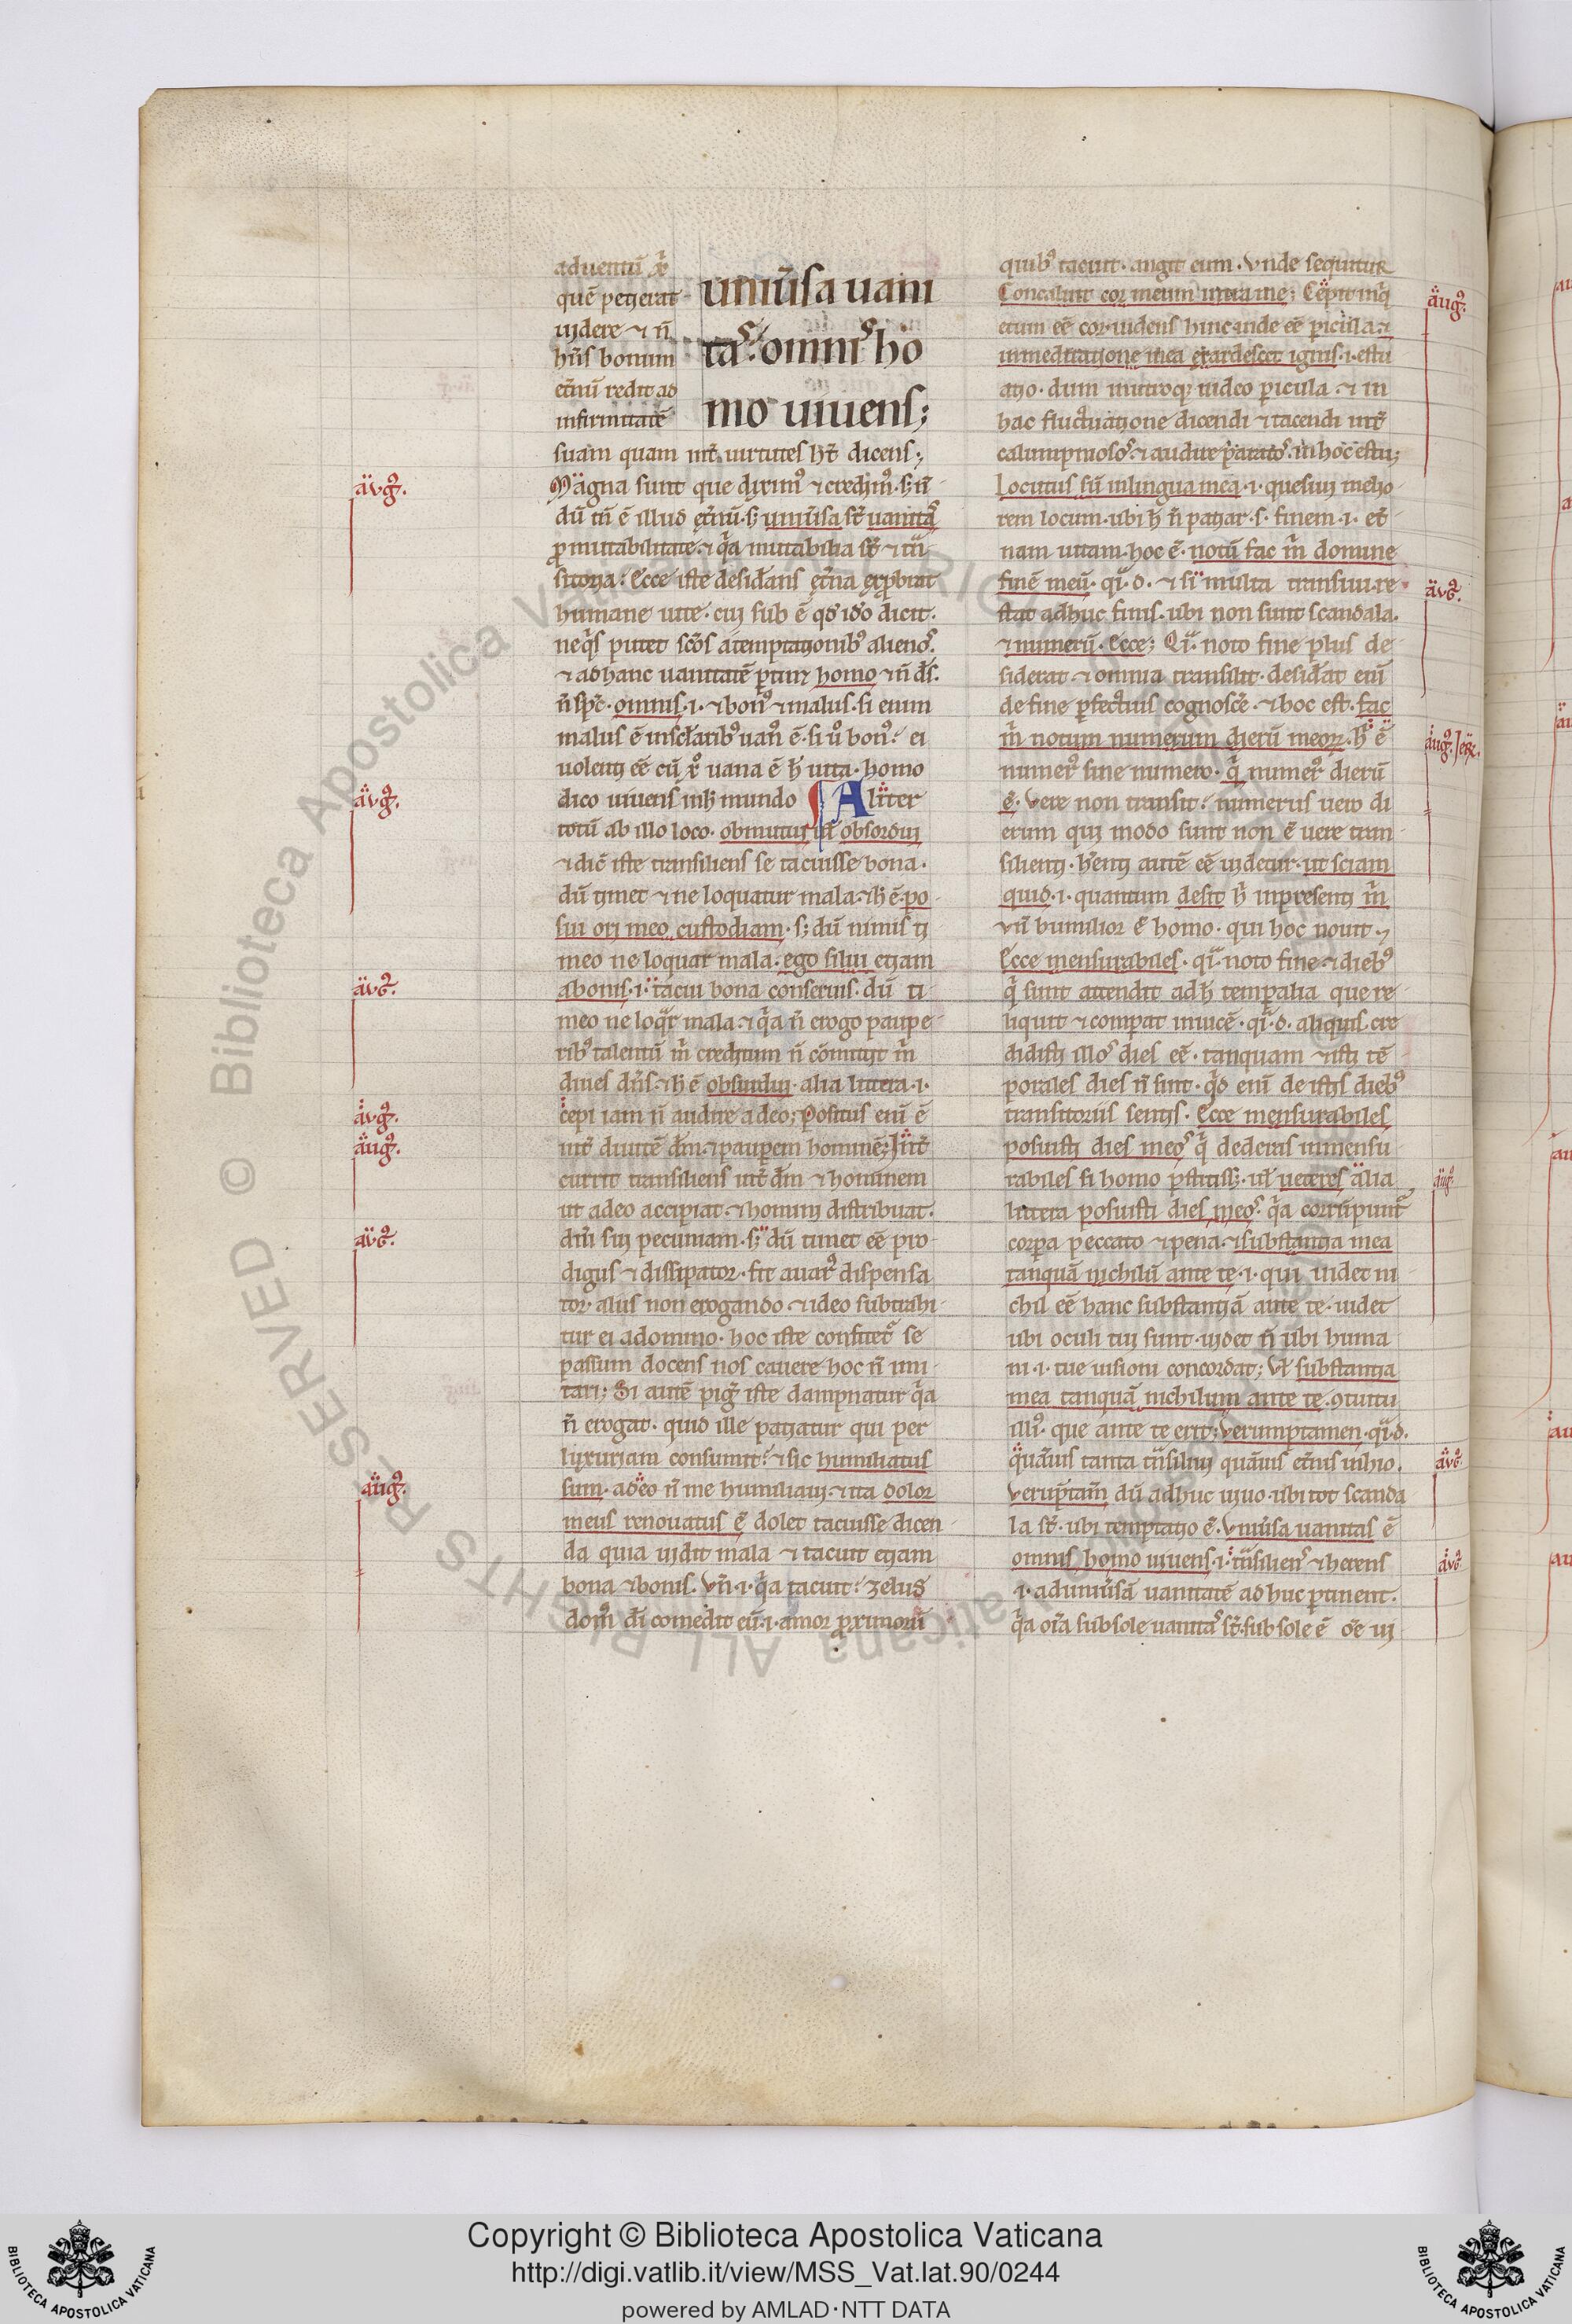 aduentū xp̄i
quē petierat
uidere ⁊ n̄
hn̄s bonum
et̄nū redit ad
infirmitatē
uniūsa uani
tas: omnis ho
mo uiuens;
suam quam int̄ uirtutes ht̄ dicens;
Magna sunt que diximꝰ ⁊ credimꝰ. sꝫ n̄
dū tn̄ ē illud et̄nū. sꝫ uniūsa st̄ uanitas
ꝓ mutabilitate. ⁊ q̄a mutabilia st̄ ⁊ t̄n
sitoria: Ecce iste desid̄ans et̄na exp̄brat
humane uite. cui sub ē qd̄ id̄o dicit.
neq̄s putet sc̄os a temptationibꝰ alienos.
⁊ ad hanc uanitatē ꝑtinꝫ homo ⁊ n̄ ds̄.
n̄ sp̄c. omnis. i. ⁊ bonꝰ ⁊ malus. si enim
malus ē uanꝰ ē. si ū bonꝰ. ei
uolenti eē cū xp̄o uana ē h̄ uita. homo
dico uiuens in h̄ mundo Aliter
totū ab illo loco. obmutui ul̄ obsordui
⁊ dic̄ iste transiliens se tacuisse bona.
dū timet ⁊ ne loquatur mala. ⁊ h̄ ē. po
sui ori meo custodiam. sꝫ dū nimis ti
meo ne loquar mala. ego silui etiam
a bonis. i. tacui bona conseruis. dū ti
meo ne loq̄r mala. ⁊ q̄a n̄ erogo paupe
ribꝰ talentū m̄ creditum n̄ cōmitit m̄
diues dn̄s. ⁊ h̄ ē obsurdui. alia littera. i.
cepi iam n̄ audire a deo; Positus enī ē
int̄ diuitē dm̄. ⁊ pauꝑem hominē; Int̄
currit transiliens int̄ dm̄ ⁊ hominem
ut a deo accipiat. ⁊ homini distribuat.
dn̄i sui pecuniam. sꝫ dū timet eē pro
digus ⁊ dissipator. fit auarꝰ dispensa
tor. aliis non erogando ⁊ ideo subtrahi
tur ei a domino. hoc iste confitet̄ se
passum docens nos cauere hoc n̄ imi
tari; Si autē pigꝰ iste dampnatur q̄a
n̄ erogat. quid ille patiatur qui per
luxuriam consumit? ⁊ sic humiliatus
sum. adeo n̄ me humiliaui. ⁊ ita dolor
meus renouatus ē dolet tacuisse dicen
da quia uidit mala ⁊ tacuit etiam
bona ⁊ bonis. Vn̄. i. q̄a tacuit? zelus
domꝰ dī comedit eū. i. amor ꝓximorū
quibꝰ tacuit. angit eum. Vnde sequitur
Concaluit cor meum intra me; Cepit inq̄
etum eē cor. uidens hinc inde eē picula. ⁊
in meditatione mea exardescet ignis. i. estu
atio. dum utrinqꝫ uideo picula. ⁊ in
hac fluctuatione dicendi ⁊ tacendi int̄
calumpniosos. ⁊ audire paratos. in hoc estu;
Locutus sū in lingua mea. i. quesiui melio
rem locum. ubi h̄ n̄ patiar. s. finem. i. et̄
nam uitam. hoc ē. notū fac m̄ domine
finē meū. qī. d. ⁊ si multa transiui. re
stat adhuc finis. ubi non sunt scandala.
⁊ numerū. Ecce; Qī. noto fine plus de
siderat ⁊ omnia transilit. desid̄at enī
de fine ꝑfectius cognosce. ⁊ hoc est. fac
m̄ notum numerum dierū meoꝝ. h̄ ē
numerꝰ sine numero. q̄ numerꝰ dierū
ē. Vere non transit? numerus uero di
erum qui modo sunt non ē uere tran
silienti. h̄enti autē eē uidetur. ut sciam
quid. i. quantum desit h̄ in presenti m̄
Vn̄ humilior ē homo. qui hoc nouit.
Ecce mensurabiles. qī. noto fine ⁊ diebꝰ
q̄ sunt attendit ad h̄ temꝑalia que re
liquit ⁊ comꝑat inuicē. qī. d. aliquis cre
didisti illos dies eē. tanquam ⁊ isti tē
porales dies n̄ sint. q̄d enī de istis diebꝰ
transitoriis sentis. Ecce mensurabiles
posuisti dies meos q̄ dederas inmensu
rabiles si homo ꝑstitissꝫ. ul̄ ueteres alia
littera posuisti dies meos. q̄a corrupunt̄
corꝑa peccato ⁊ pena. ⁊ substantia mea
tanquā nichilū ante te. i. qui uidet ni
chil eē hanc substantiā ante te. uidet
ubi oculi tui sunt. uidet n̄ ubi huma
ni. i. tue uisioni concordat; Vl̄ substantia
mea tanquā nichilum ante te. ꝯtuitu
illiꝰ. que ante te erit; Verumptamen. qī. d.
q̄uāuis tanta t̄nsilui quāuis et̄nis inhio.
Verūptam̄ dū adhuc uiuo. ubi tot scanda
la st̄. ubi temptatio ē. Vniūsa uanitas ē
omnis homo uiuens. i. t̄nsiliens ⁊ herens
i. ad uniūsā uanitatē adhuc ꝑtinent.
q̄a oīa sub sole uanitas st̄. sub sole ē oē ui
aug.
aug.
aug.
aug.
aug.
aug.
aug.
aug.
aug.
aug.
aug.
aug.
aug.
Copyright © Biblioteca Apostolica Vaticana
http://digi.vatlib.it/view/MSS_Vat.lat.90/0244
powered by AMLAD·NTT DATA
BIBLIOTECA APOSTOLICA VATICANA
BIBLIOTECA APOSTOLICA VATICANA